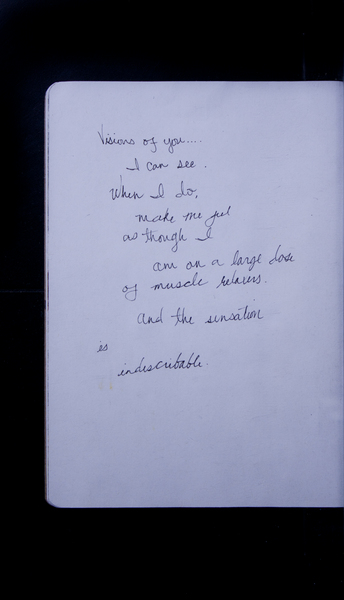 Visions of you.....
I can see.
When I do,
make me feel
as though I
am on a large dose
of muscle relaxers.
and the sensation
is
indescribable.